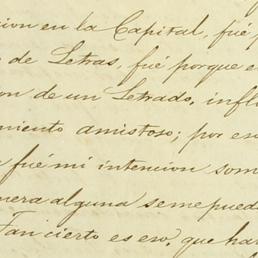 cion en la Capital, fué p
de Letras, fué porque e
on de un Letrado, infl
miento amistoso; por eso
fué mi intencion som
nera alguna se me pued
Tan cierto es eso, que ha